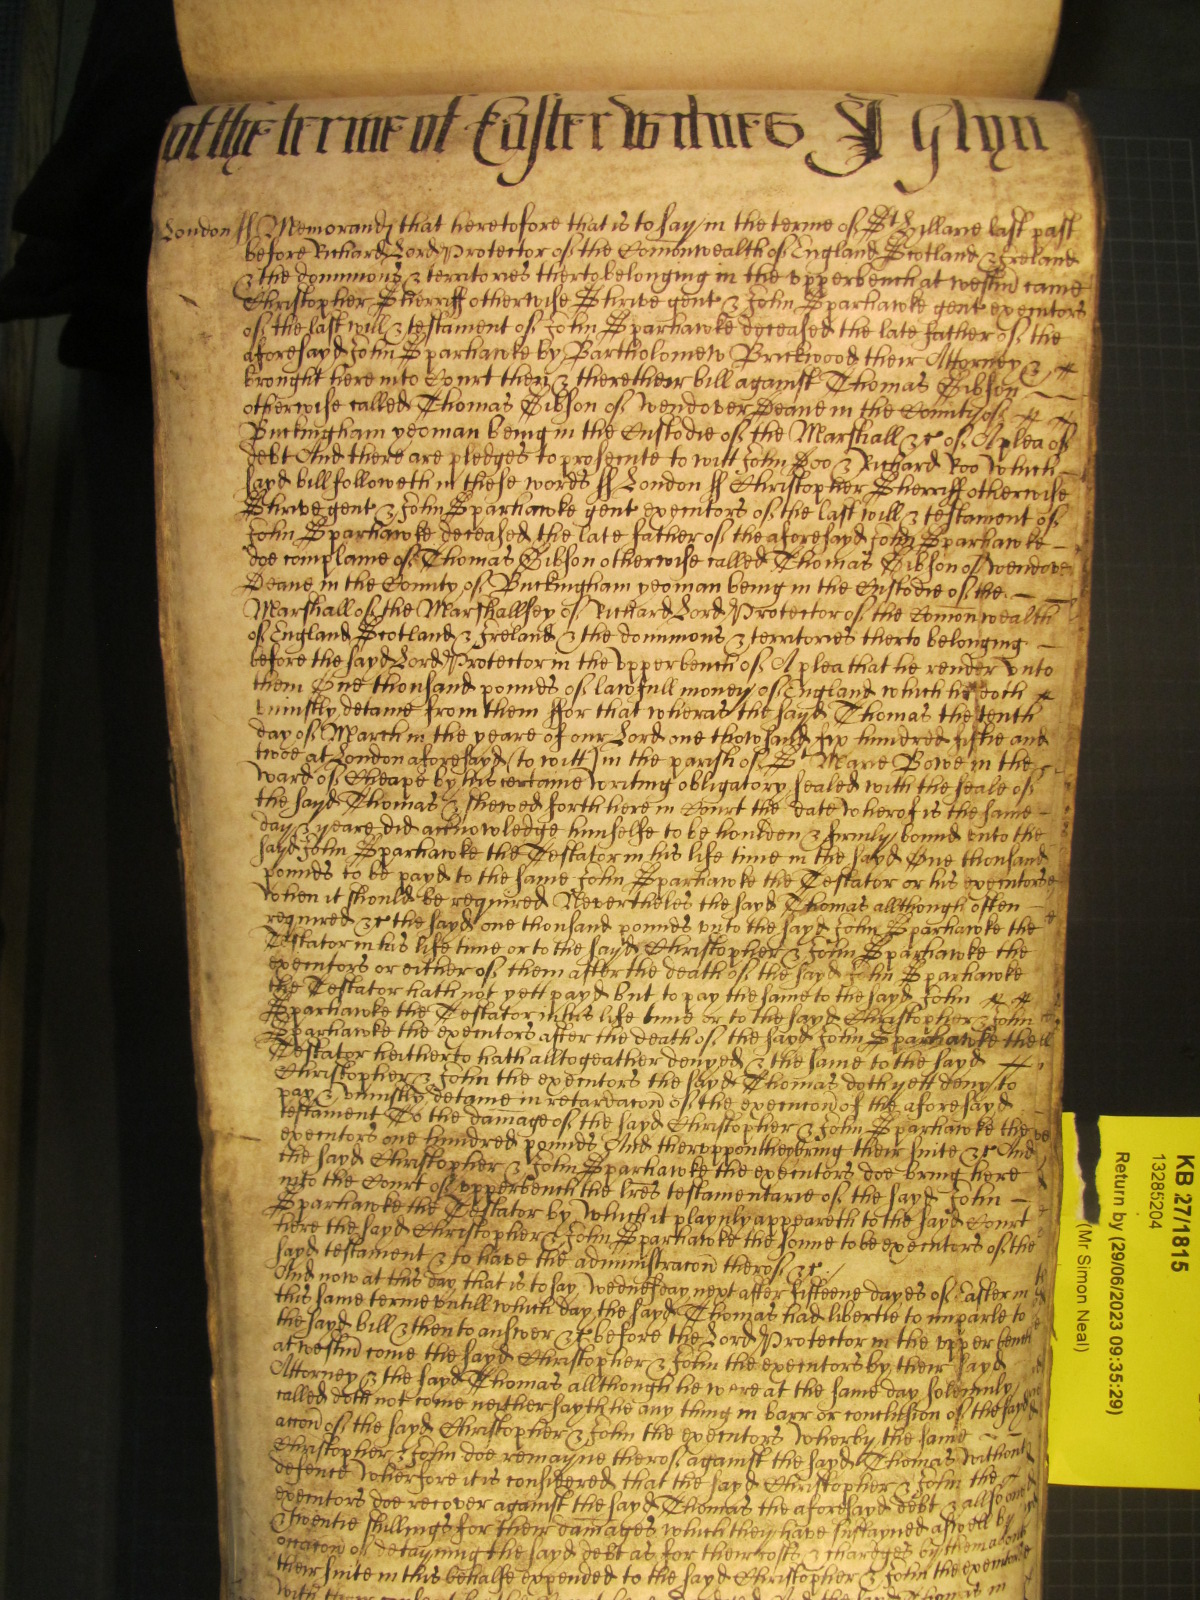 of the terme of Easter Witnes J Glyn
London ss Memorand that heretofore that is to say in the terme of St Hillarie last past
before Richard Lord Protector of the Comonwealth of England Scotland & Ireland
& the dominions & territories therto belonging in the upperbench at westm came
Christopher Sherriff otherwise Shrive gent & John Sparhawke gent executors
of the last will & testament of John Sparhawke deceased the late father of the
aforesayd John Sparhawke by Bartholomew Brickwood their Attorney &
brought here into Court then & there their bill against Thomas Gibson
otherwise called Thomas Gibson of Wendover Deane in the County of
Buckingham yeoman being in the Custodie of the Marshall &c of A plea of
debt And there are pledges to prosecute to witt John Doo & Richard Roo Which
sayd bill followeth in these words ss London ss Christopher Sherriff otherwise
Shrive gent & John Sparhawke gent executors of the last will & testament of
John Sparhawke deceased the late father of the aforesayd John Sparhawke
doe complaine of Thomas Gibson otherwise called Thomas Gibson of Wendover
Deane in the County of Buckingham yeoman being in the Custodie of the
Marshall of the Marshallsey of Richard Lord Protector of the Comonwealth
of England Scotland & Ireland & the dominions & territories therto belonging
before the sayd Lord Protector in the upper bench of A plea that he render unto
them One thousand pounds of lawfull money of England which he doth
uniustly detaine from them ffor that wheras the sayd Thomas the tenth
day of March in the yeare of our Lord one thowsand six hundred fiftie and
twoe at London aforesayd (to witt) in the parish of St Marie Bowe in the
Ward of Cheape by his certaine writing obligatory sealed with the seale of
the sayd Thomas & shewed forth here in Court the date Wherof is the same
day & yeare did acknowledge himselfe to be houlden & firmly bound unto the
sayd John Sparhawke the Testator in his life time in the sayd One thousand
pounds to be payd to the same John Sparhawke the Testator or his executors
when it should be required Nevertheles the sayd Thomas allthough often
required &c the sayd one thousand pounds unto the sayd John Sparhawke the
Testator in his life time or to the sayd Christopher & John Sparhawke the
executors or either of them after the death of the sayd John Sparhawke
the Testator hath not yett payd but to pay the same to the sayd John
Sparhawke the Testator in his life time or to the sayd Christopher & John
Sparhawke the executors after the death of the sayd John Sparhawke the
Testator heitherto hath alltogeather denyed & the same to the sayd
Christopher & John the executors the sayd Thomas doth yett deny to
pay & uniustly detaine in retardacon of the execucon of the aforesayd
testament To the damage of the sayd Christopher & John Sparhawke the
executors one hundred pounds And therupon they bring their suite &c And
the sayd Christopher & John Sparhawke the executors doe bring here
into the Court of upperbench the lres testamentarie of the sayd John
Sparhawke the Testator by Which it playnly appeareth to the sayd Court
here the sayd Christopher & John Sparhawke the sonne to be executors of the
sayd testament & to have the administracon therof &c
And now at this day that is to say Wednesday next after fifteene dayes of Easter in
this same terme untill which day the sayd Thomas had libertie to imparle to
the sayd bill & then to answer &c before the Lord Protector in the upper bench
at westm come the sayd Christopher & John the executors by their sayd
Attorney & the sayd Thomas allthough he were at the same day solemnly
called doth not come neither sayth he any thing in barr or conclusion of the sayd
accon of the sayd Christopher & John the executors Wherby the same
Christopher & John doe remayne therof against the sayd Thomas Without
defence Wherfore it is considered that the sayd Christopher & John the
executors doe recover against the sayd Thomas the aforesayd debt & allso
twentie shillings for their damages which they have sustayned aswell by
occacon of detayning the sayd debt as for their costs & chardges by them about
their suite in this behalfe expended to the sayd Christopher & John the executors
KB 27/1815
13285204
Return by (29/06/2023 09:35:29)
(Mr Simon Neal)